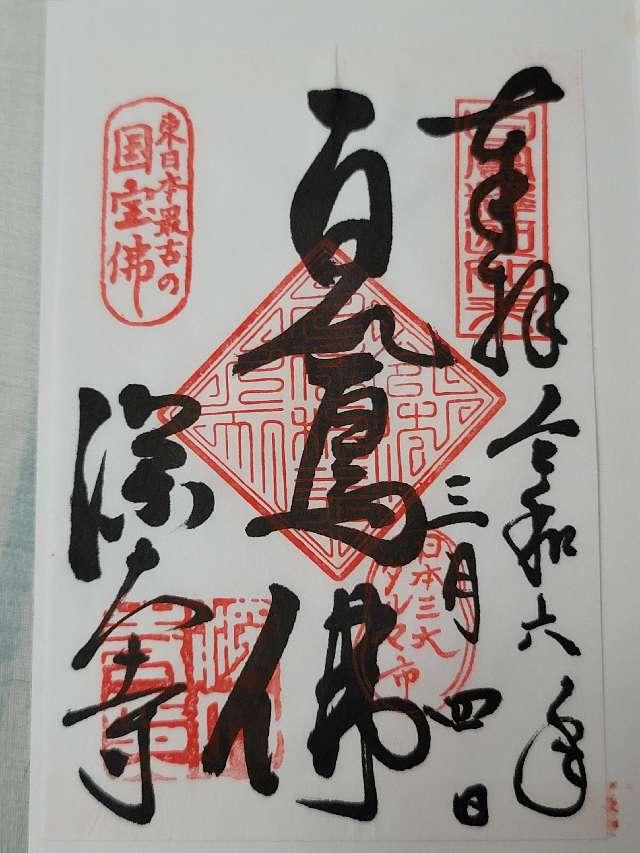 奉拝
令和六年
三月四日
日本三大
ダルマ市
白鳳佛
東日本最古の
国宝佛
深大寺